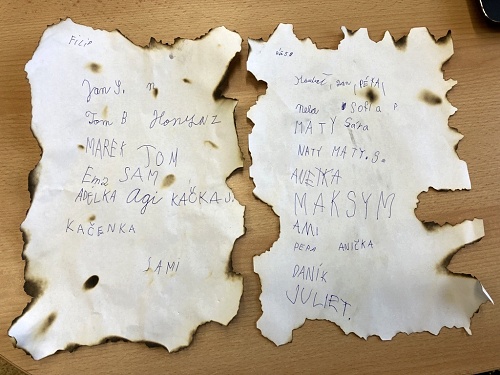 FILIP
Jan S. n
Tom B Honza Z
MAREK TOM
Ema SAM
ADELKA Agi KAČKA J.
KAČENKA
SAMI
Jan, PÉŤA,
Nela Sofia P.
MATY Sára
NATY MATY. S.
ANETKA
MAKSYM
AMI
PEPA ANIČKA
DANÍK
JULIET.